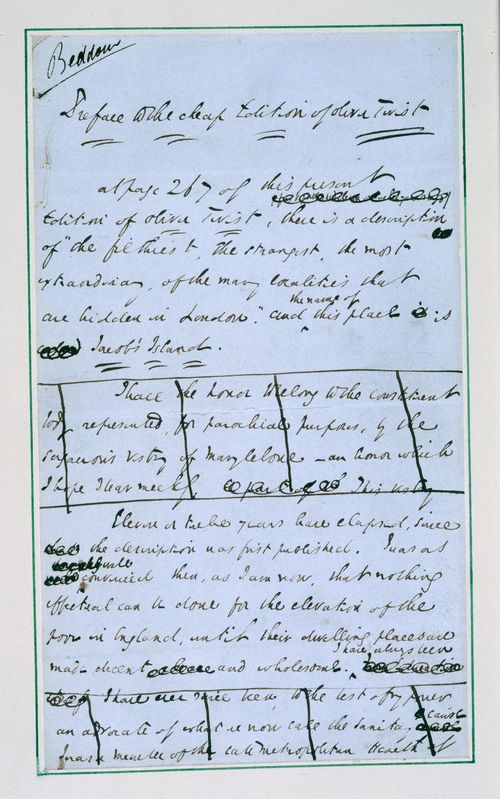 Beddow
Preface to the cheap Edition of Oliver Twist
At page 267 of this present
Edition of Oliver Twist, there is a description
of "the filthiest, the strangest, the most
extraordinary, of the many localities that
are hidden in London." and the name of this place is
Jacob's Island.
I have the honor to belong to the constituent
body represented, for parochial purposes, by the
sagacious vestry of Marylebone – an honor which
I hope I bear meekly. This vestry
Eleven or twelve years have elapsed, since
the description was first published. I was as
well convinced then, as I am now, that nothing
effectual can be done for the elevation of the
poor in England, until their dwelling places are
made decent and wholesome. I have always been
I have ever since been, to the best of my power
an advocate of what we now call the Sanitary cause
I was a member of the late Metropolitan Health of